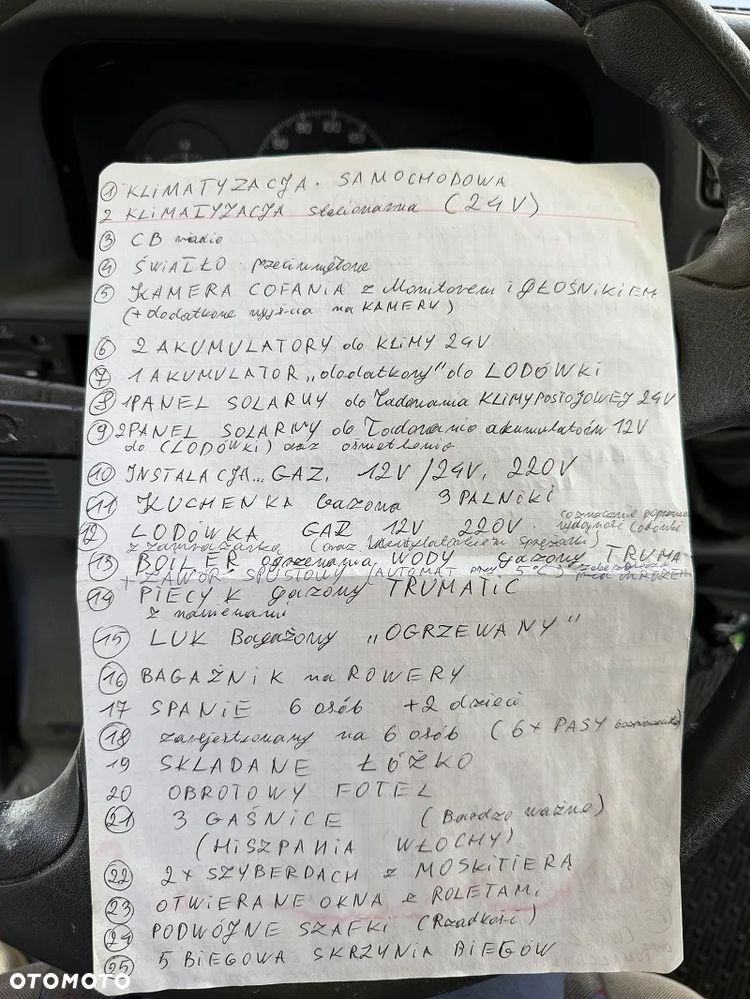 ① KLIMATYZACJA. SAMOCHODOWA
2 KLIMATYZACJA stacionarna (24V)
③ CB radio
④ ŚWIATŁO przeciwmgłowe
⑤ KAMERA COFANIA z Monitorem i GŁOŚNIKIEM
(+ dodatkowe wyjścia na KAMERY)
⑥ 2 AKUMULATORY do KLIMY 24V
⑦ 1 AKUMULATOR „dodatkowy" do LODÓWKI
⑧ 1 PANEL SOLARNY do Ładowania KLIMY POSTOJOWEJ 24V
⑨ 2 PANEL SOLARNY do Ładowania akumulatorów 12V
do (LODÓWKI) oraz oświetlenia
10 INSTALACJA... GAZ. 12V/24V. 220V
11 KUCHENKA Gazowa 3 PALNIKI
co znacznie poprawia
12 LODÓWKA GAZ 12V 220V. wydajność lodówki
z zamrażarką (oraz Wentylatorkiem sprężarki)
13 BOILER ogrzewania WODY gazowy TRUMA
+ ZAWÓR SPUSTOWY (AUTOMAT przy 5°C)
14 PIECYK gazowy TRUMATIC
z nawiewami
15 LUK Bagażowy „OGRZEWANY"
16 BAGAŻNIK na ROWERY
17 SPANIE 6 osób +2 dzieci
18 zarejestrowany na 6 osób (6x PASY
19 SKŁADANE ŁÓŻKO
20 OBROTOWY FOTEL
21 3 GAŚNICE (Bardzo ważne)
(HISZPANIA WŁOCHY)
22 2x SZYBERDACH z MOSKITIERĄ
23 OTWIERANE OKNA z ROLETAMI
24 PODWÓJNE SZAFKI (Rzadkość)
25 5 BIEGOWA SKRZYNIA BIEGÓW
OTOMOTO